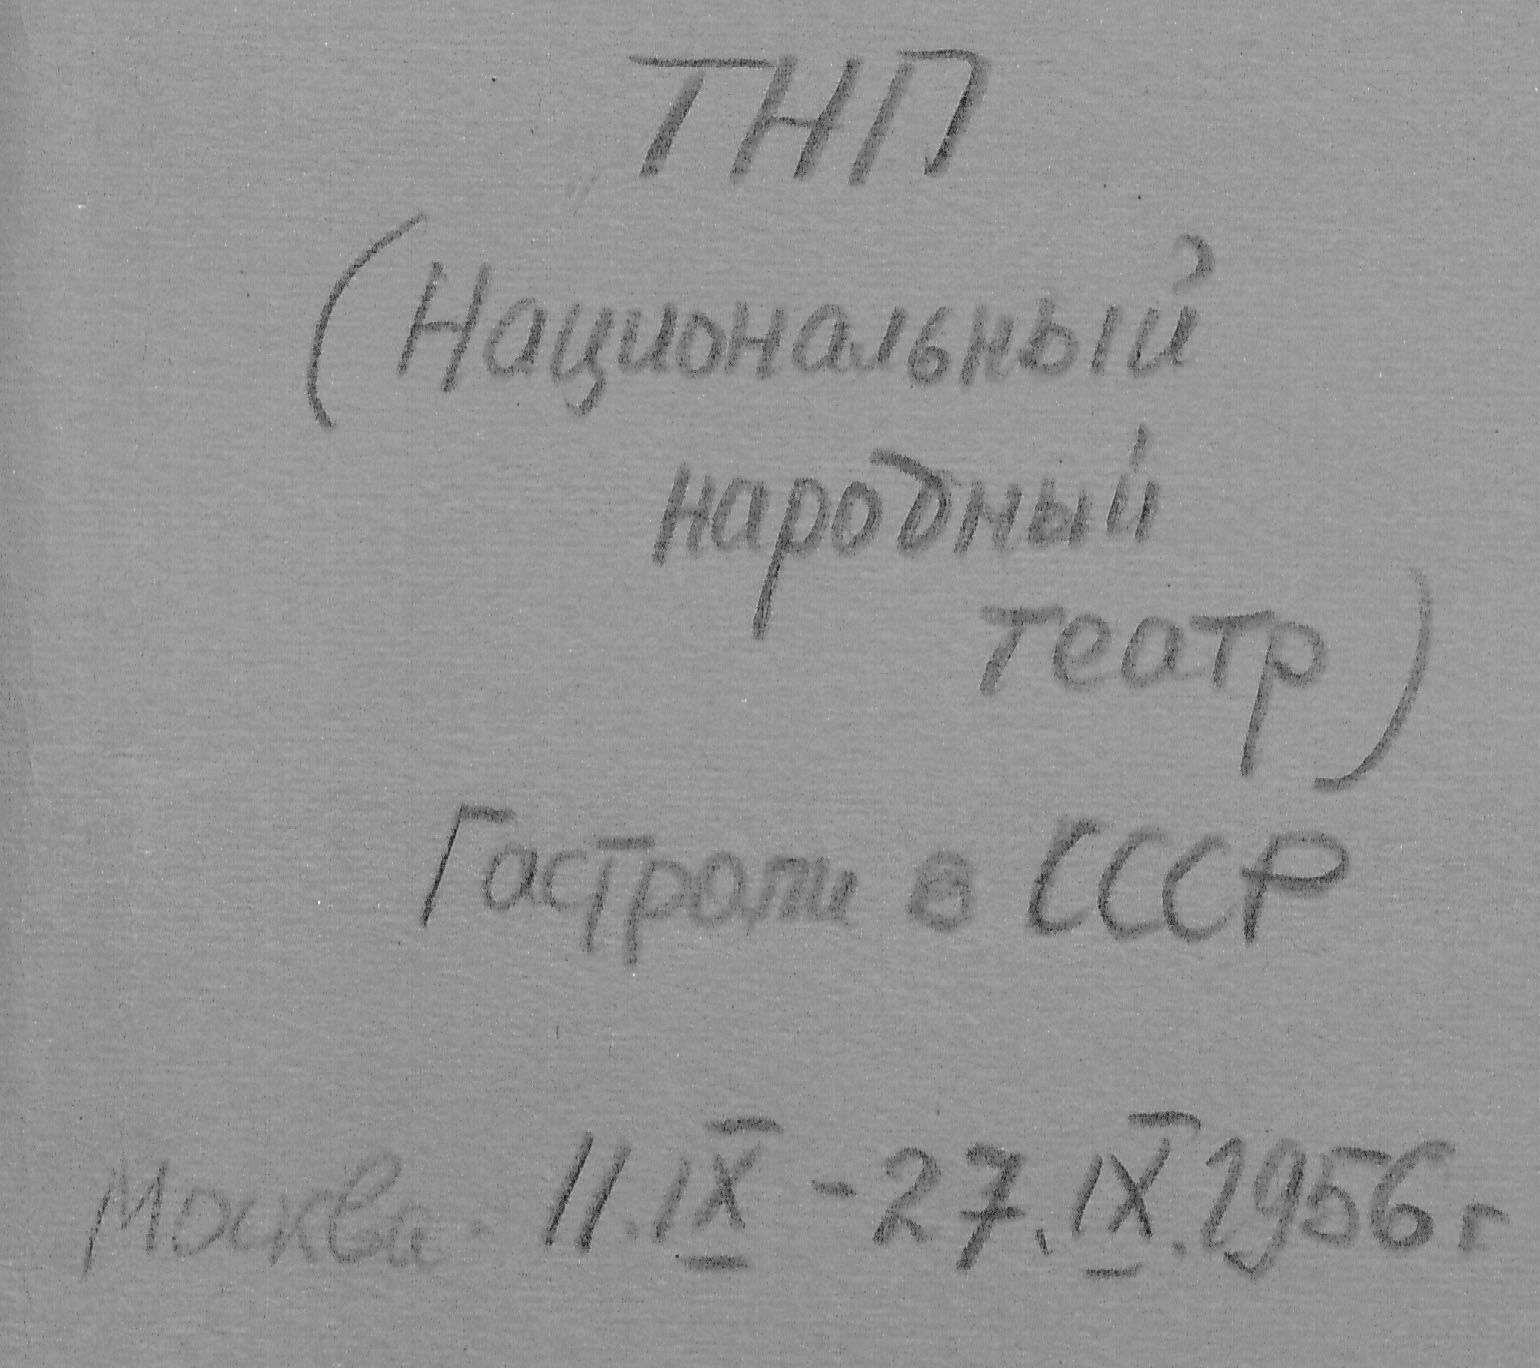 ТНП
(Национальный
народный
театр)
Гастроли в СССР
Москва. 11.IX - 27.IX.1956 г